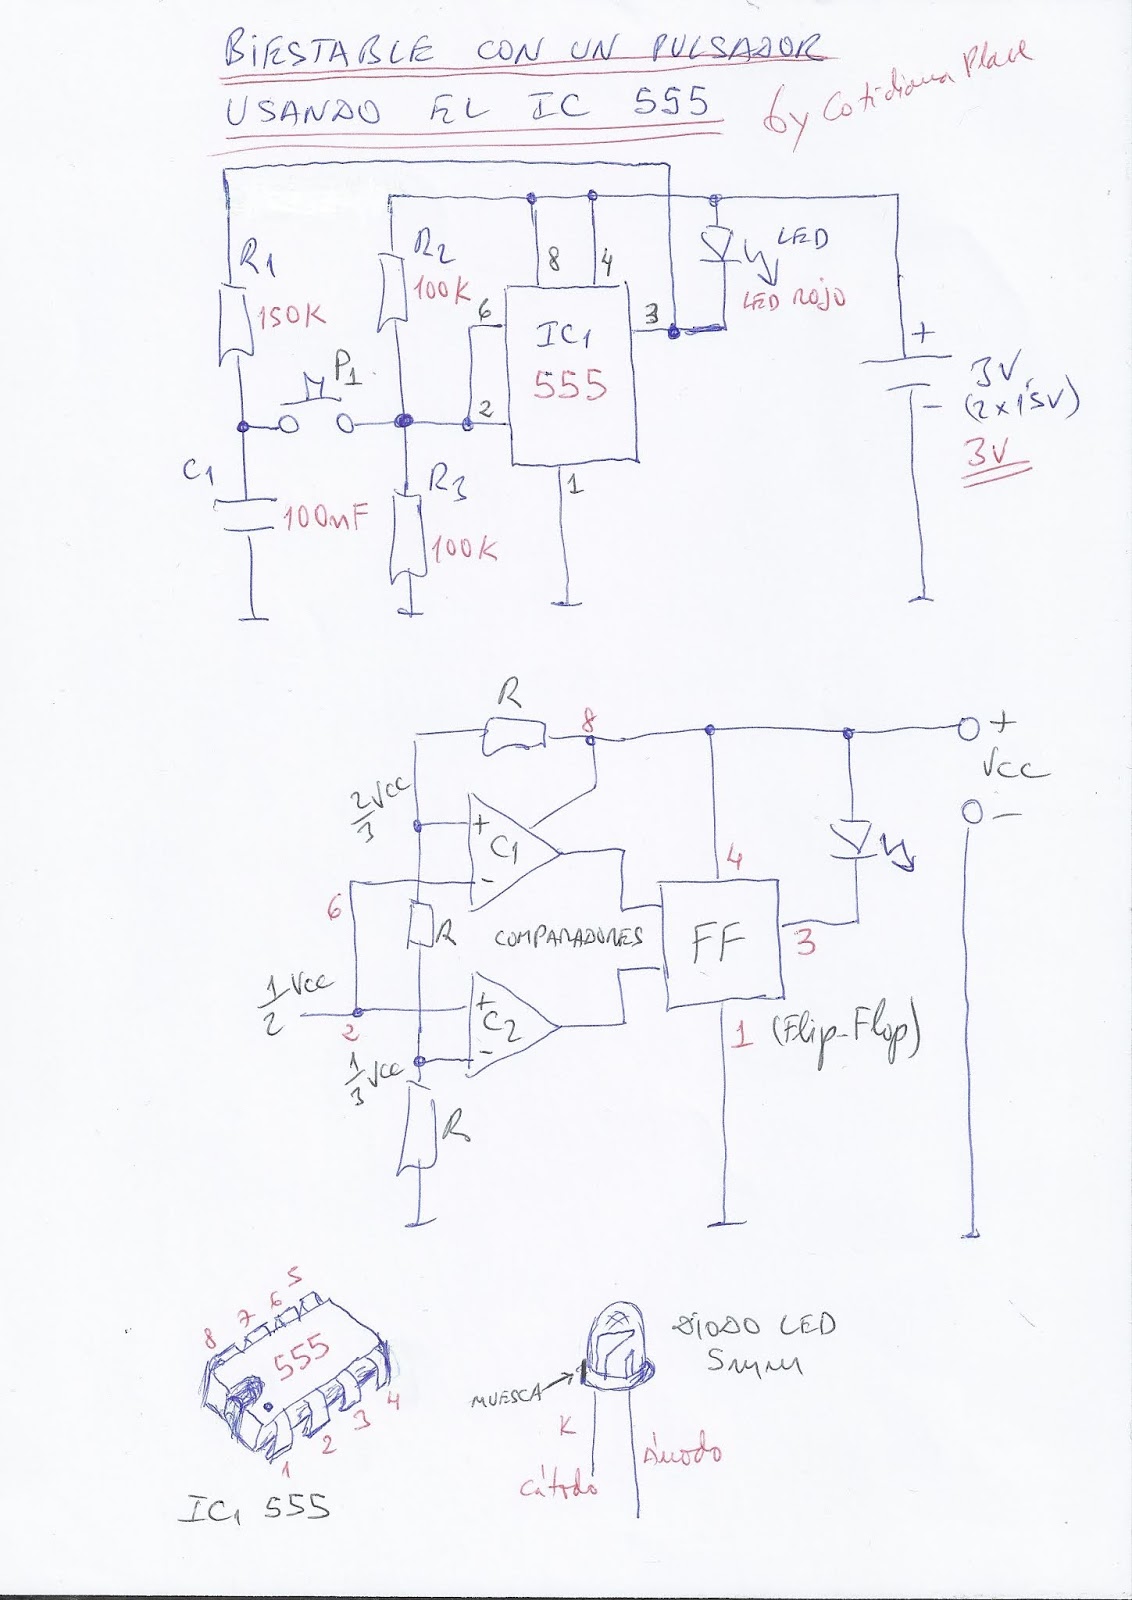 BIESTABLE CON UN PULSADOR
USANDO EL IC 555
by Cotidiana Place
R1
150K
R2
100K
8
4
LED
LED ROJO
6
3
IC1
555
P1
2
+
3V
(2x1'5V)
-
3V
C1
100nF
R3
100K
1
R
8
+
Vcc
-
2/3 Vcc
+
C1
-
4
6
R
COMPARADORES
FF
3
1/2 Vcc
2
+
C2
-
1 (Flip-Flop)
1/3 Vcc
R
8 7 6 5
555
1 2 3 4
IC1 555
DIODO LED
5mm
MUESCA
K
Cátodo
Ánodo